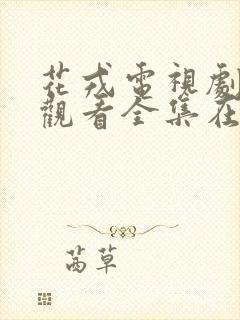 花戎電視劇
觀看全集在
茜草